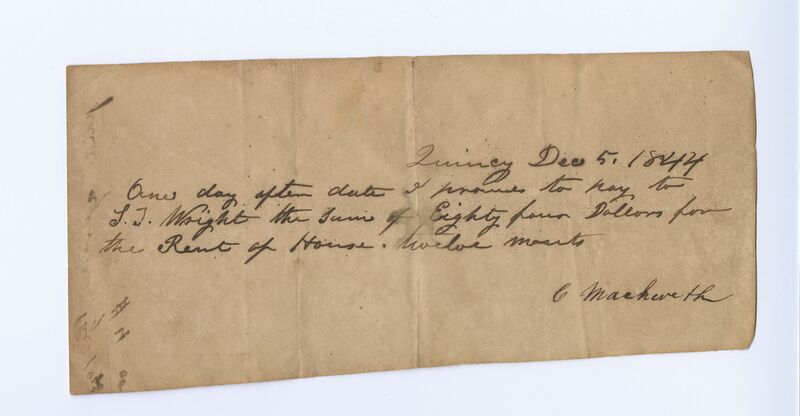 Quincy Dec 5. 1844
One day after date I promes to pay to
S. J. Wright the Sum of Eighty four Dollars for
the Rent of House. twelve
C Mackwith